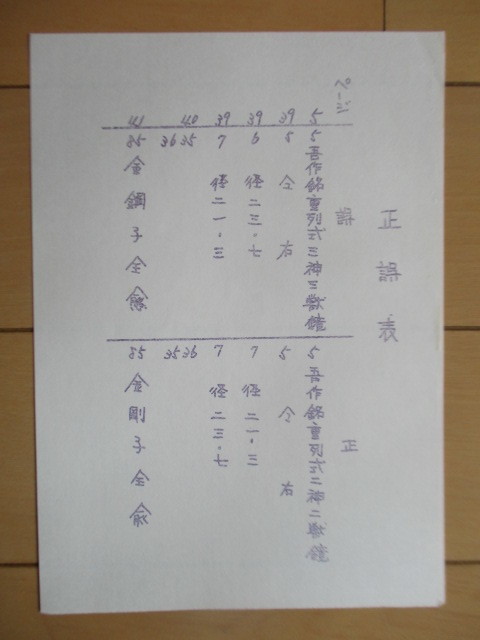 正誤表
ページ 誤 正
5 5 吾作銘重列式三神三獣鏡 5 吾作銘重列式二神二獣鏡
39 8 仝 右 5 仝 右
39 6 径二三・七 7 径二一・三
39 7 径二一・三 7 径二三・七
40 35 35 36
36
41 85 金鋼子全 85 金剛子全